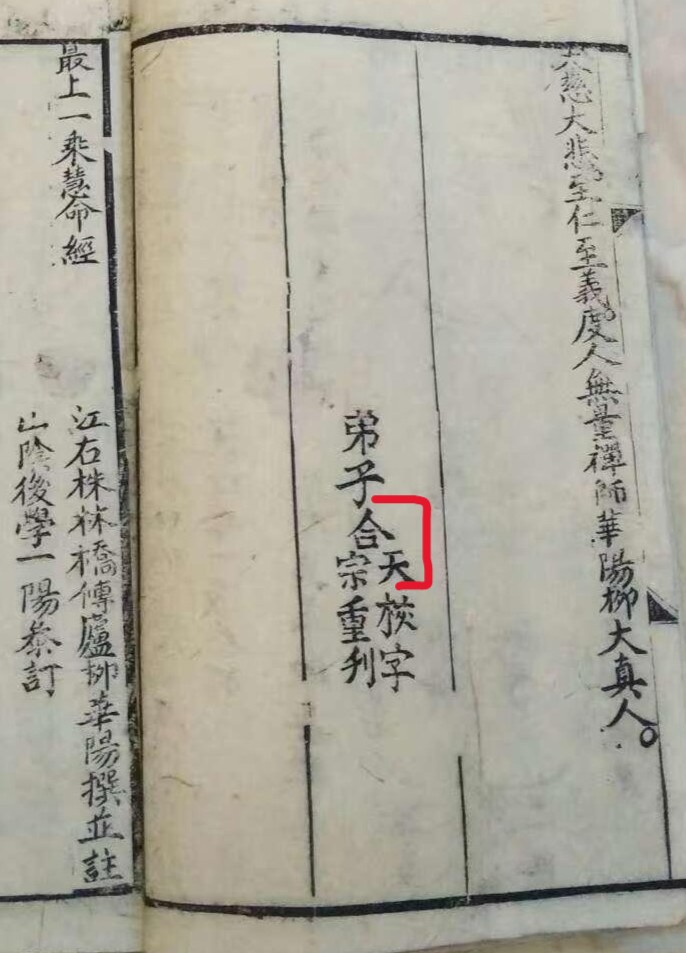 大慈大悲至仁至義度人無量禪師華陽柳大真人。
弟子合
天
宗重刋
字
最上一乘慧命經
江右株林橋傳廬柳華陽撰並註
山陰後學一陽叅訂